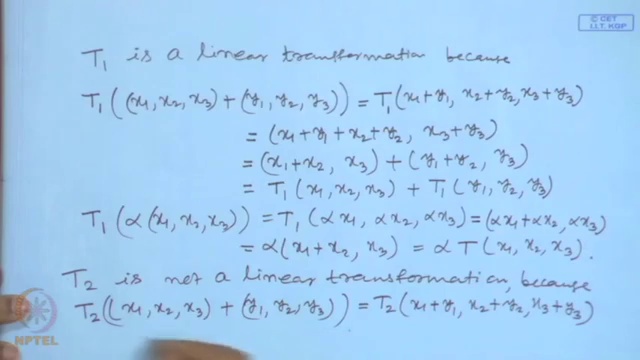 © CET
I.I.T. KGP
T₁ is a linear transformation because
T₁((x₁, x₂, x₃) + (y₁, y₂, y₃)) = T₁(x₁+y₁, x₂+y₂, x₃+y₃)
= (x₁+y₁+x₂+y₂, x₃+y₃)
= (x₁+x₂, x₃) + (y₁+y₂, y₃)
= T₁(x₁, x₂, x₃) + T₁(y₁, y₂, y₃)
T₁(α(x₁, x₂, x₃)) = T₁(αx₁, αx₂, αx₃) = (αx₁+αx₂, αx₃)
= α(x₁+x₂, x₃) = αT(x₁, x₂, x₃).
T₂ is not a linear transformation, because
T₂((x₁, x₂, x₃) + (y₁, y₂, y₃)) = T₂(x₁+y₁, x₂+y₂, x₃+y₃)
NPTEL